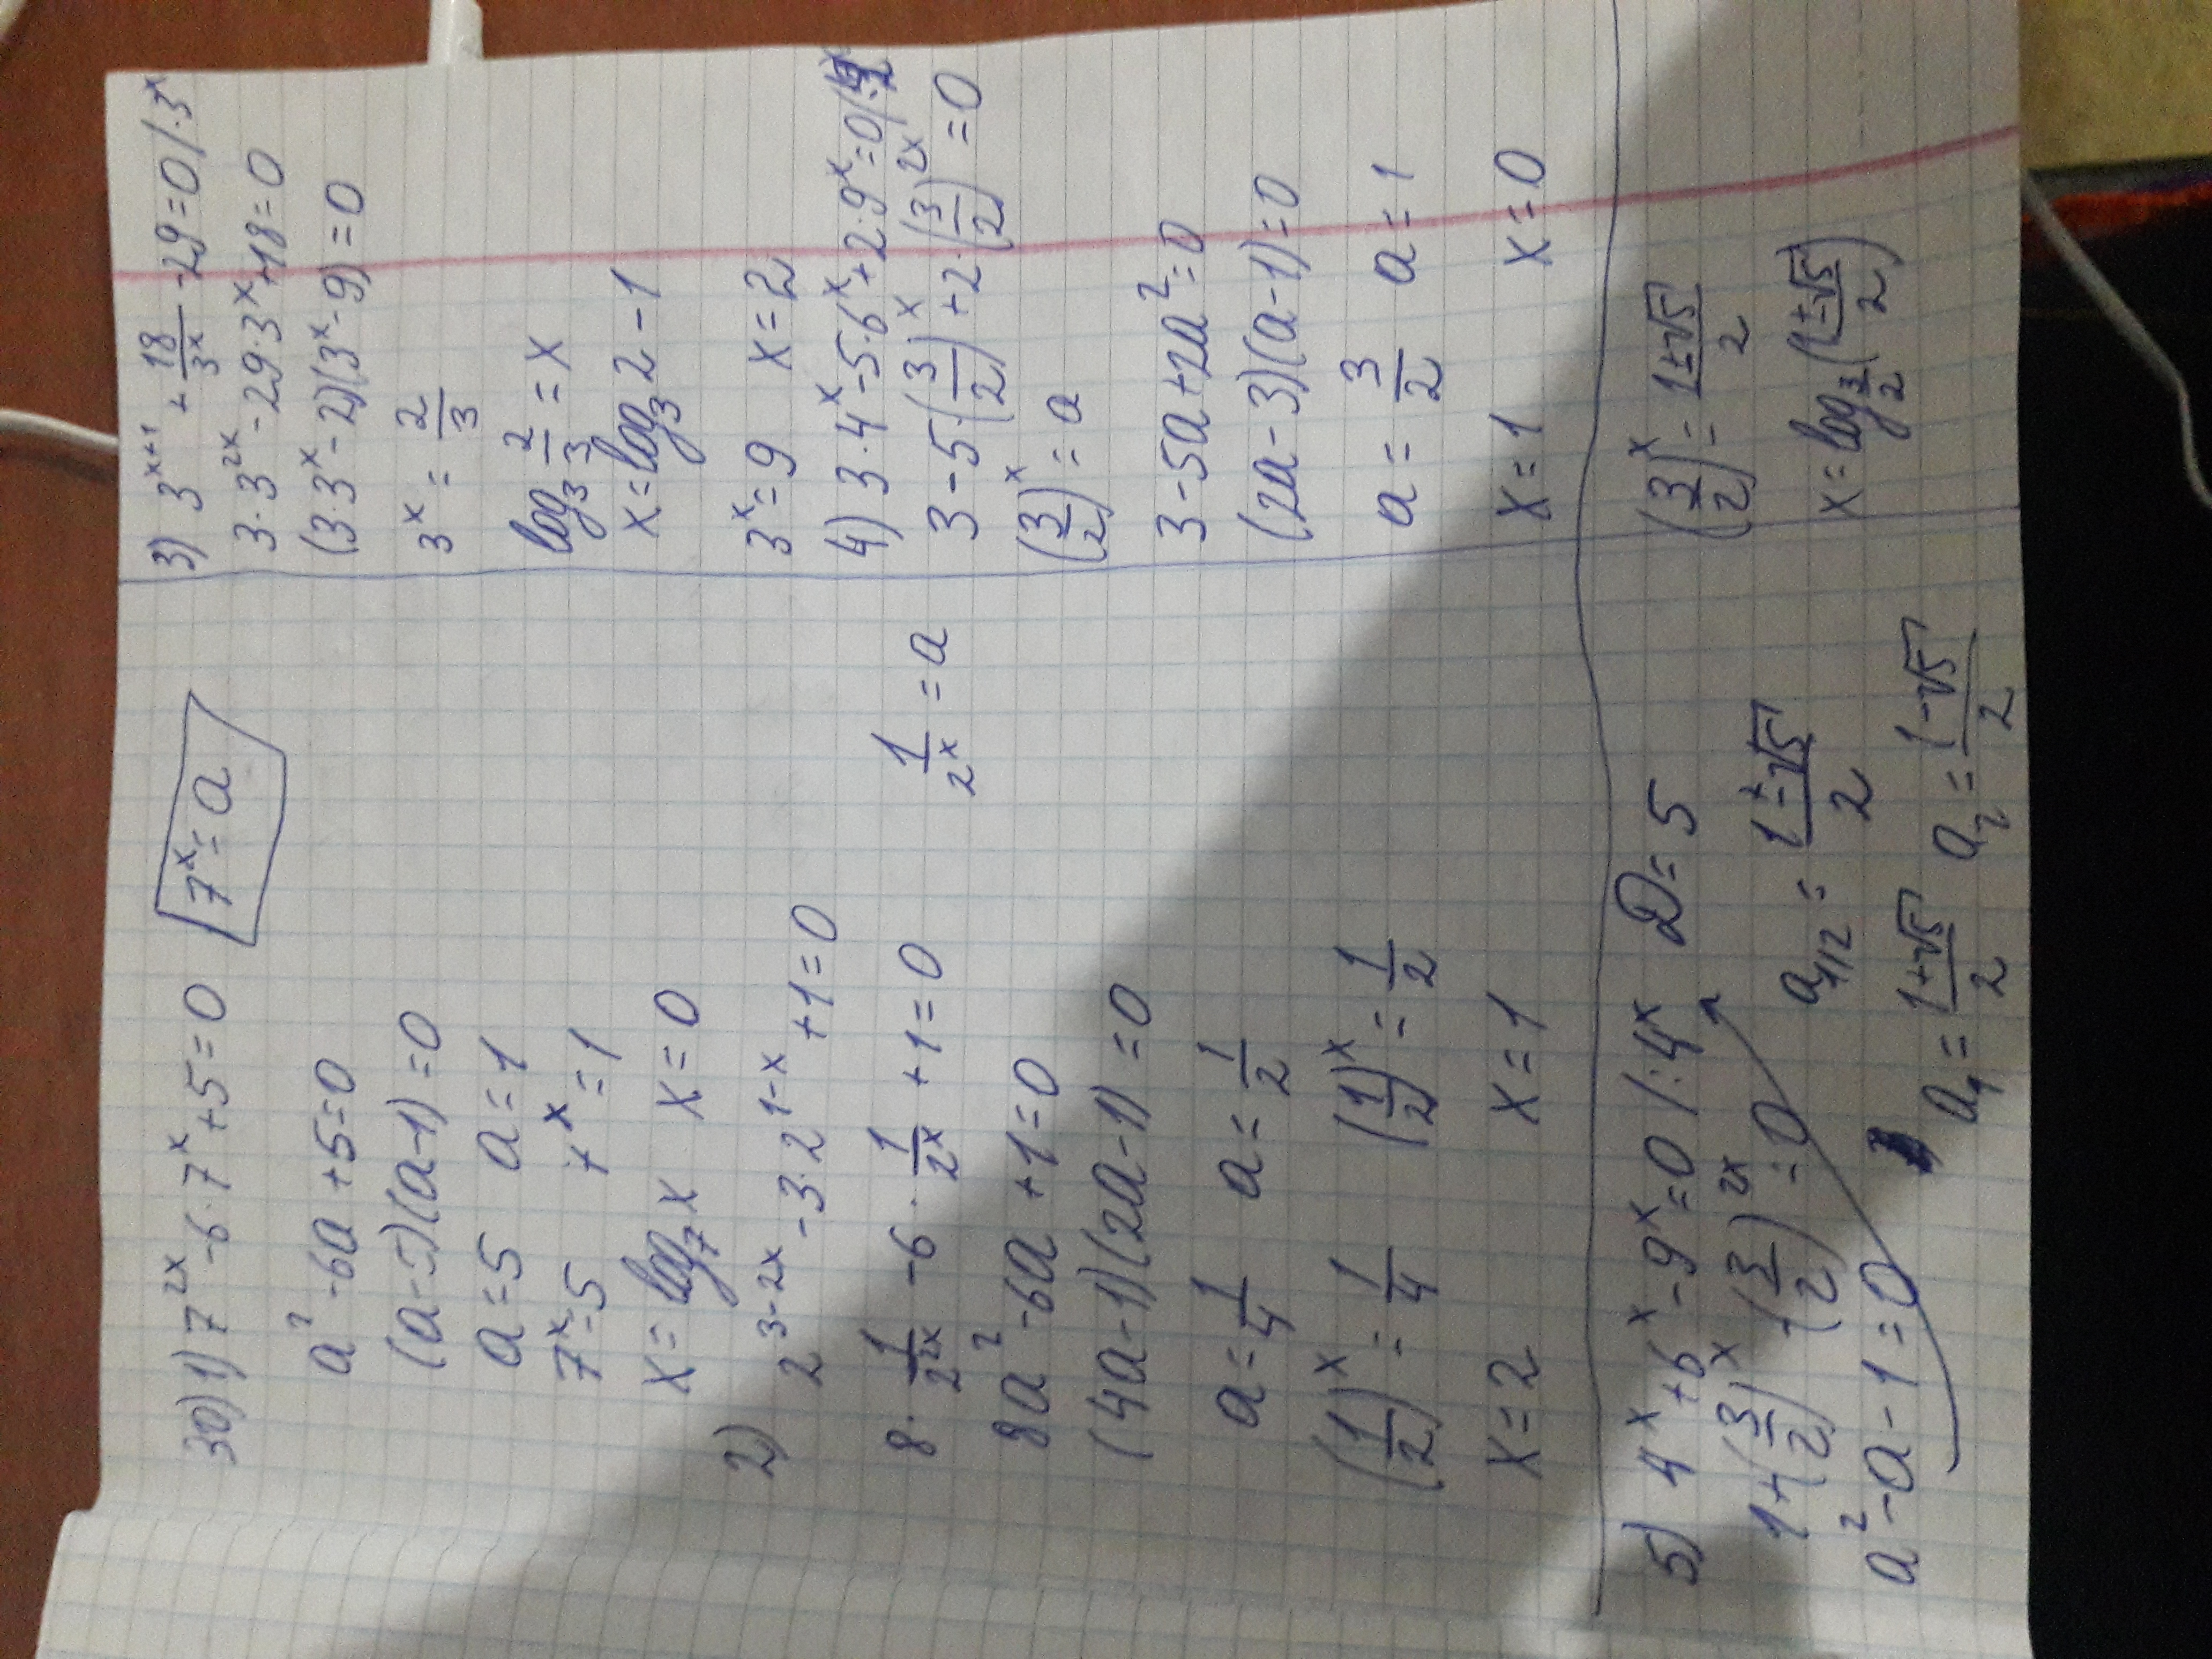 30) 1) 7^{2x} - 6·7^x + 5 = 0   7^x = a
a² - 6a + 5 = 0
(a-5)(a-1) = 0
a = 5   a = 1
7^x = 5   7^x = 1
x = log_7 x   x = 0
2) 2^{3-2x} - 3·2^{1-x} + 1 = 0
8·\frac{1}{2^{2x}} - 6·\frac{1}{2^x} + 1 = 0   \frac{1}{2^x} = a
8a² - 6a + 1 = 0
(4a-1)(2a-1) = 0
a = \frac{1}{4}   a = \frac{1}{2}
(\frac{1}{2})^x = \frac{1}{4}   (\frac{1}{2})^x = \frac{1}{2}
x = 2   x = 1
3) 3^{x+1} + \frac{18}{3^x} - 29 = 0 /·3^x
3·3^{2x} - 29·3^x + 18 = 0
(3·3^x - 2)(3^x - 9) = 0
3^x = \frac{2}{3}
log_3 \frac{2}{3} = x
x = log_3 2 - 1
3^x = 9   x = 2
4) 3·4^x - 5·6^x + 2·9^x = 0 /:
3 - 5·(\frac{3}{2})^x + 2·(\frac{3}{2})^{2x} = 0
(\frac{3}{2})^x = a
3 - 5a + 2a² = 0
(2a-3)(a-1) = 0
a = \frac{3}{2}   a = 1
x = 1   x = 0
5) 4^x + 6^x - 9^x = 0 /:4^x   D = 5
1 + (\frac{3}{2})^x - (\frac{3}{2})^{2x} = 0
a_{1/2} = \frac{1±√5}{2}
a² - a - 1 = 0
a_1 = \frac{1+√5}{2}   a_2 = \frac{1-√5}{2}
(\frac{3}{2})^x = \frac{1±√5}{2}
x = log_{\frac{3}{2}}(\frac{1±√5}{2})